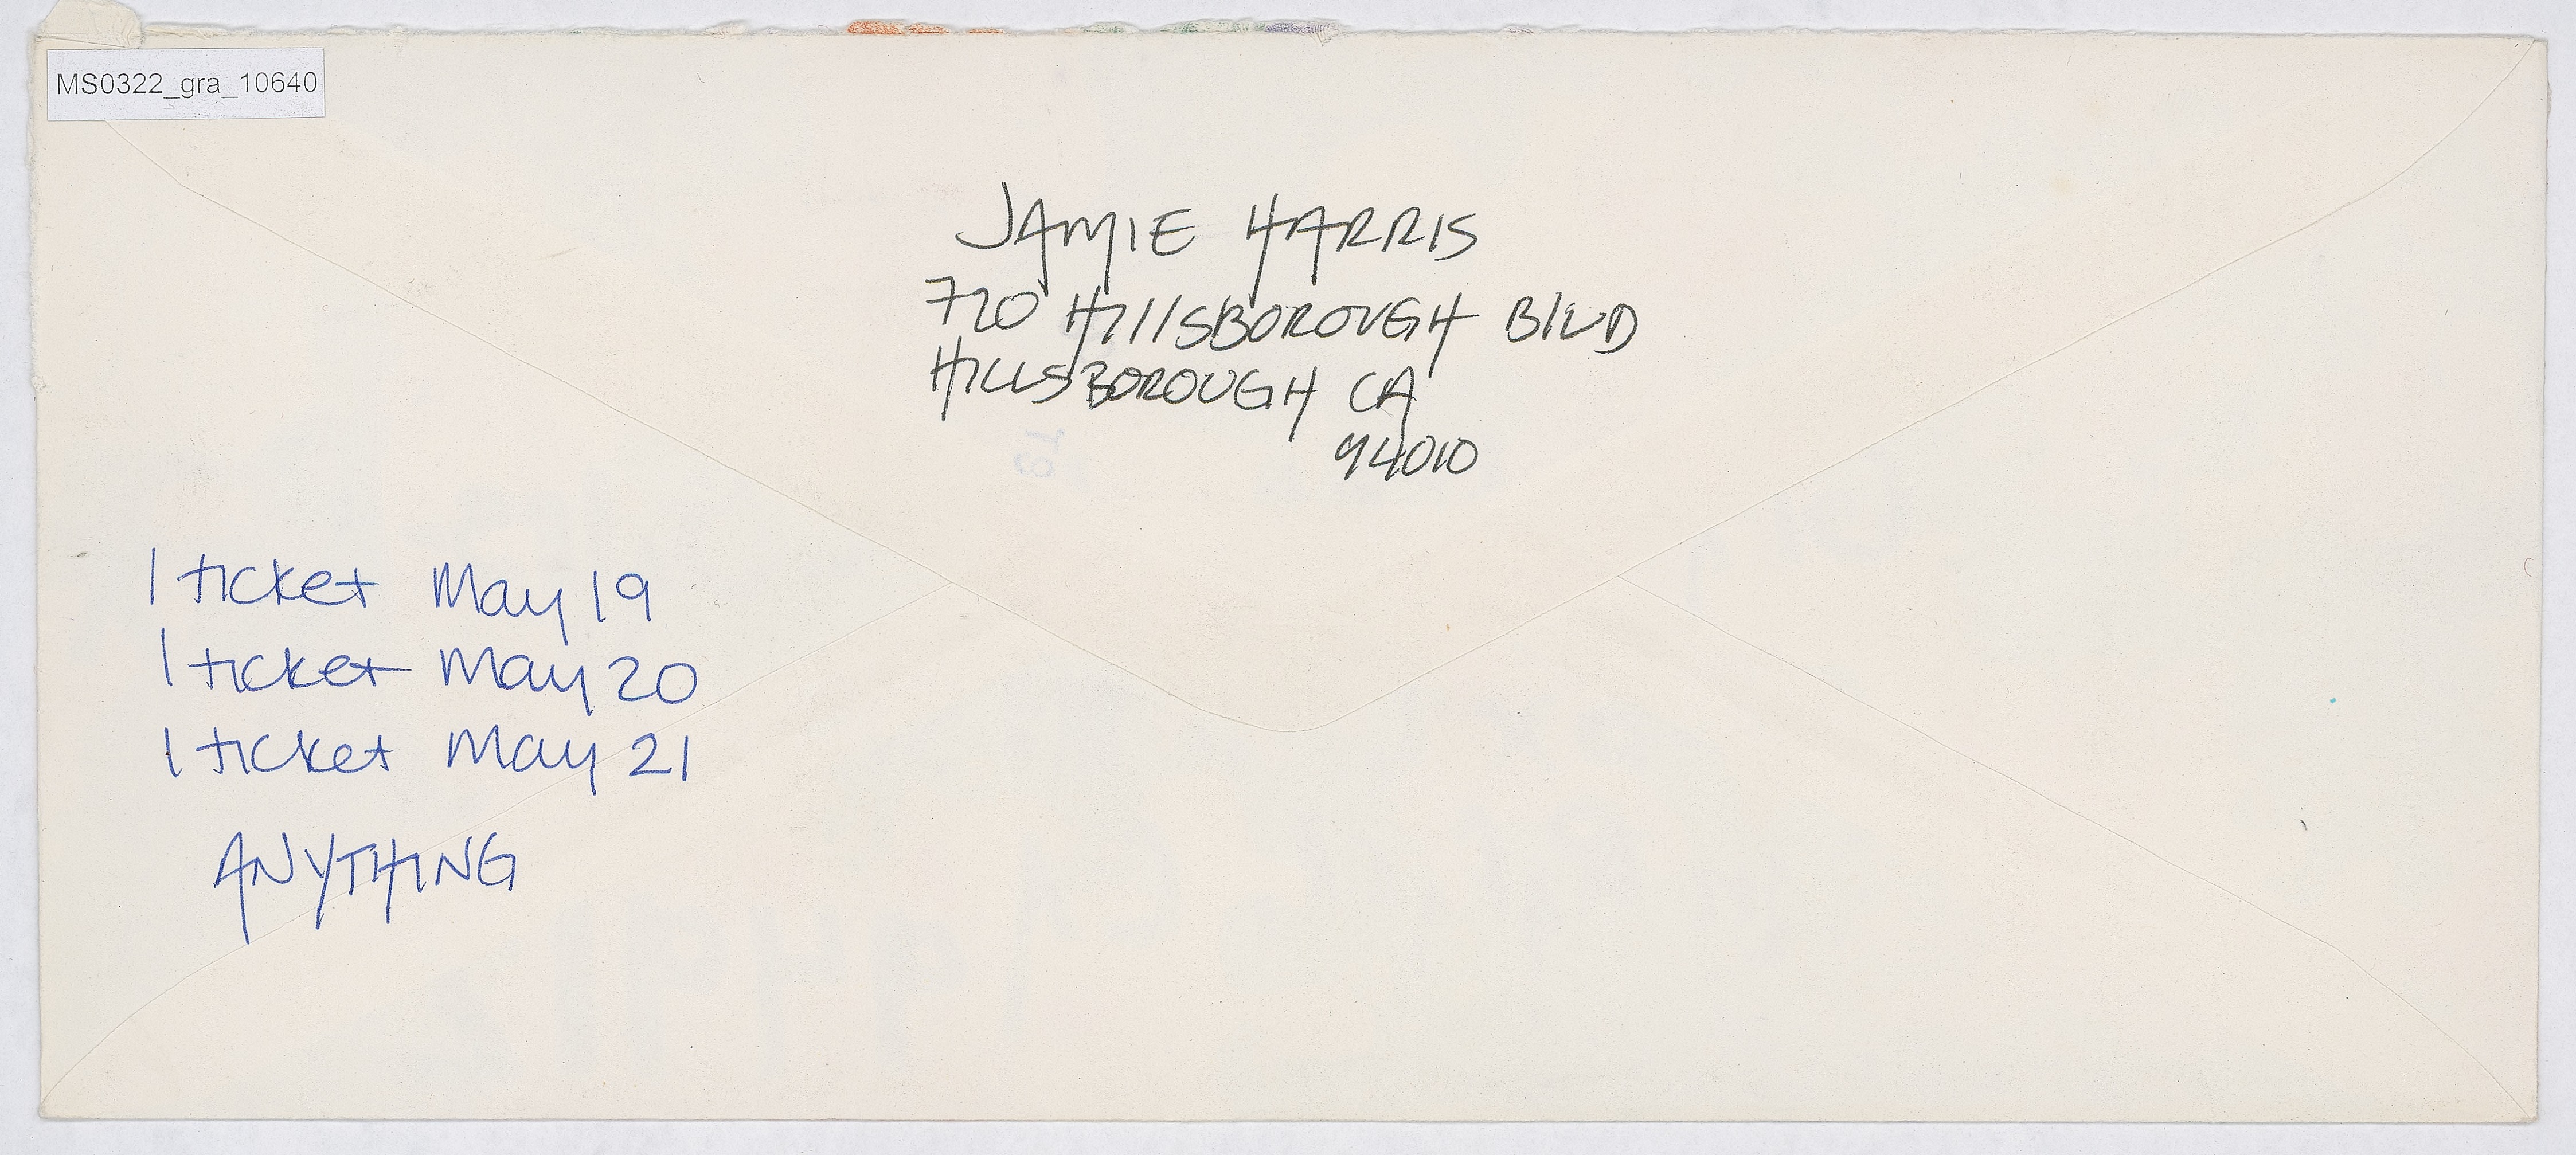 MS0322_gra_10640
JAMIE HARRIS
720 HIllSBOROUGH BlVD
HILLSBOROUGH CA
94010
1 ticket May 19
1 ticket May 20
1 ticket May 21
ANYTHING